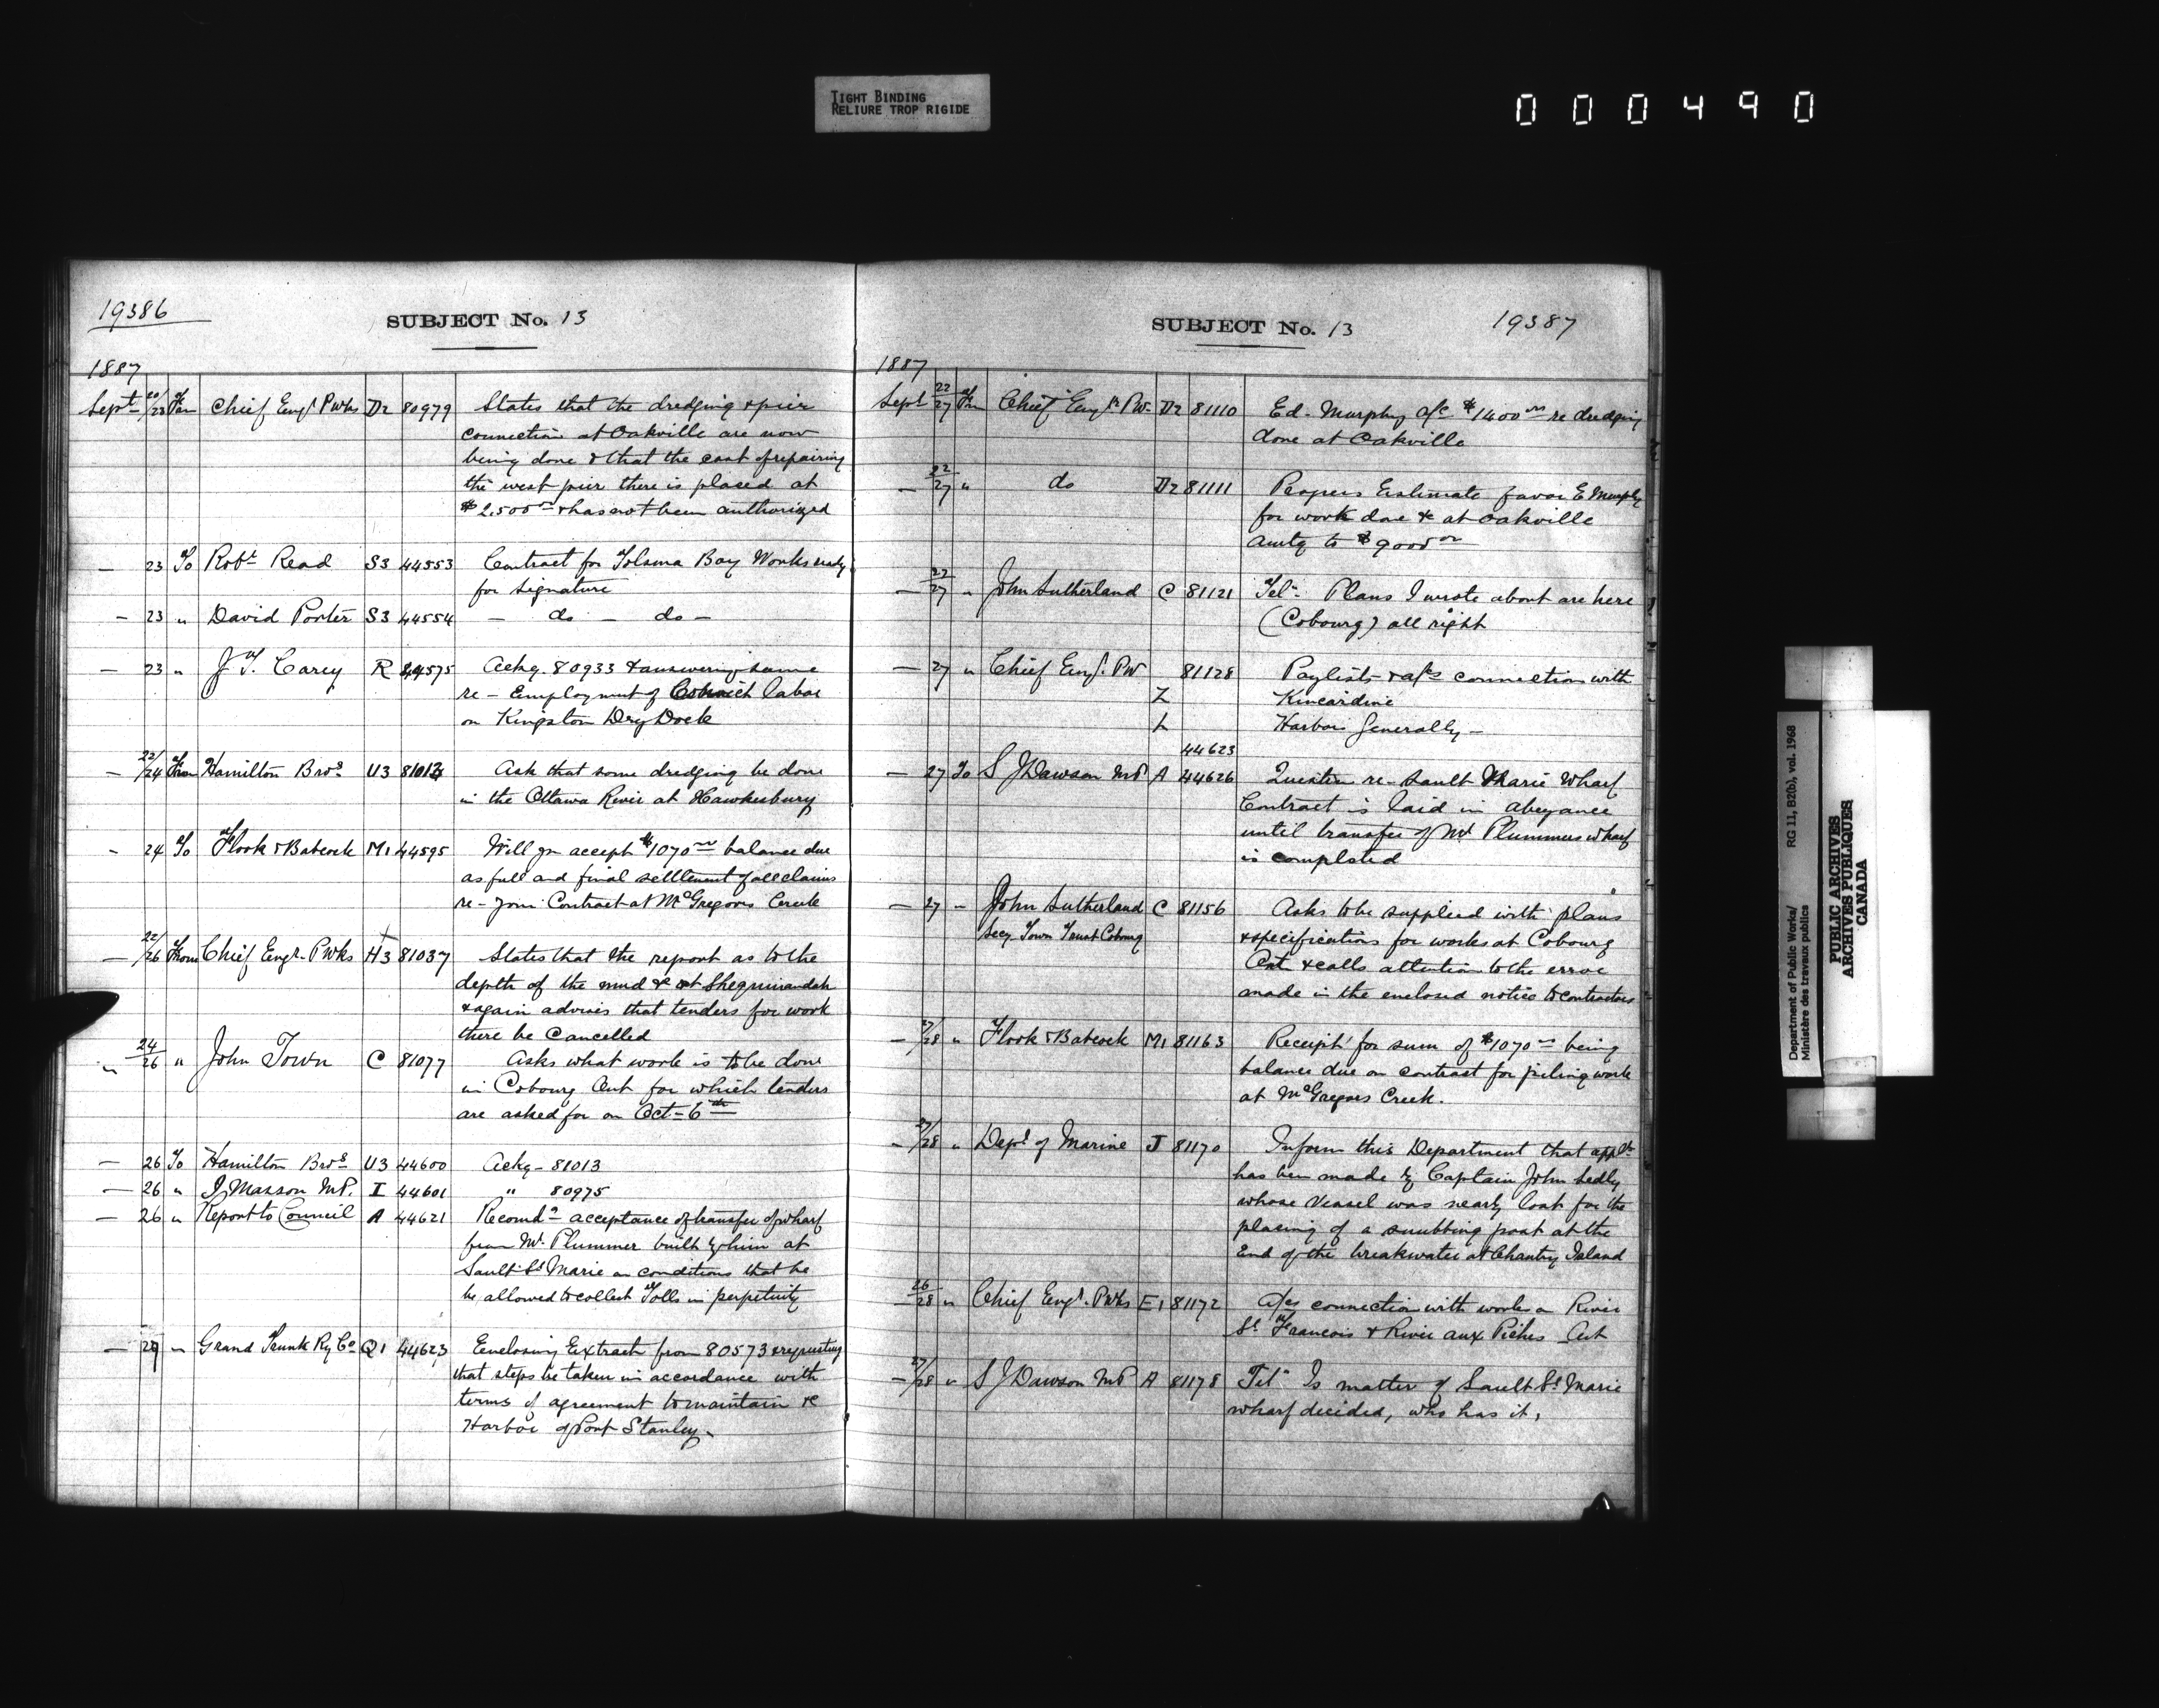 TIGHT BINDING
RELIURE TROP RIGIDE
000490
19386
SUBJECT No. 13
1887
Sept 20/23 From Chief Engr Pwks D2 80979 States that the dredging & pier
connection at Oakville are now
being done & that the cost of repairing
the west pier there is placed at
$2.500 & has not been authorized
— 23 To Robt Read S3 44553 Contract for Bay Works ready
for signature
— 23 " David Porter S3 44554 — do — do —
— 23 " J. F. Carey R 44575 Ackg. 80933 & answering same
re - Employment of labor
on Kingston Dry Dock
— 22/24 From Hamilton Bros U3 81013 Ask that some dredging be done
in the Ottawa River at Hawkesbury
— 24 To Flook & Babcock M1 44595 Will you accept $1070 balance due
as full and final settlement of all claims
re - your Contract at McGregors Creek
— 22/26 From Chief Engr. Pwks H3 81037 States that the report as to the
depth of the mud &c at Sheguiandah
& again advises that tenders for work
there be Cancelled
24/26 " John Town C 81077 Asks what work is to be done
in Cobourg Ont for which tenders
are asked for on Oct - 6th
— 26 To Hamilton Bros U3 44600 Ackg - 81013
— 26 " J. Masson M.P. I 44601 " 80975
— 26 " Report to Council A 44621 Recomdg acceptance of transfer of wharf
from Mr. Plummer built by him at
Sault St Marie on conditions that he
be allowed to collect Tolls in perpetuity
— 27 " Grand Trunk Ry Co Q1 44623 Enclosing Extract from 80573 & requesting
that steps be taken in accordance with
terms of agreement to maintain &c
Harbor of Port Stanley.
SUBJECT No. 13
19387
1887
Sept 22/27 From Chief Engr PW D2 81110 Ed. Murphy a/c $1400 re dredging
done at Oakville
— 22/27 " do D2 81111 Progress Estimate favor E Murphy
for work done &c at Oakville
amtg to $9000
— 22/27 " John Sutherland C 81121 Tel. Plans I wrote about are here
(Cobourg) all right
— 27 " Chief Engr. PW 81128 Paylists & a/cs connection with
Z Kincardine
L Harbors Generally —
44623
— 27 To S J Dawson MP A 44626 Question re - Sault St Marie Wharf
Contract is laid in abeyance
until transfer of Mr Plummers wharf
is completed
— 27 " John Sutherland C 81156 Asks to be supplied with plans
Secy Town Trust Cobourg & specifications for works at Cobourg
Ont & calls attention to the error
made in the enclosed notice to contractors
— 27/28 " Flook & Babcock M1 81163 Receipt for sum of $1070 being
balance due on contract for piling work
at McGregors Creek.
— 27/28 " Dept of Marine J 81170 Inform this Department that appln
has been made by Captain John
whose vessel was nearly lost for the
placing of a snubbing post at the
End of the breakwater at Chantry Island
26/28 " Chief Engr. Pwks E1 81172 A/cs connection with works on River
St Francois & River aux Pêches
— 27/28 " S J Dawson MP A 81178 Tel Is matter of Sault St Marie
wharf decided, who has it,
Department of Public Works/
Ministère des travaux publics
RG 11, B2(b), vol. 1968
PUBLIC ARCHIVES
ARCHIVES PUBLIQUES
CANADA